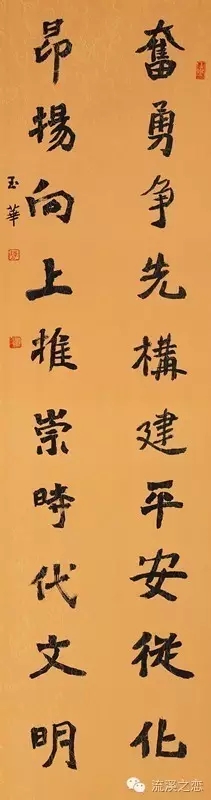 奮勇争先構建平安從化
昂揚向上推崇時代文明
玉華
流溪之恋